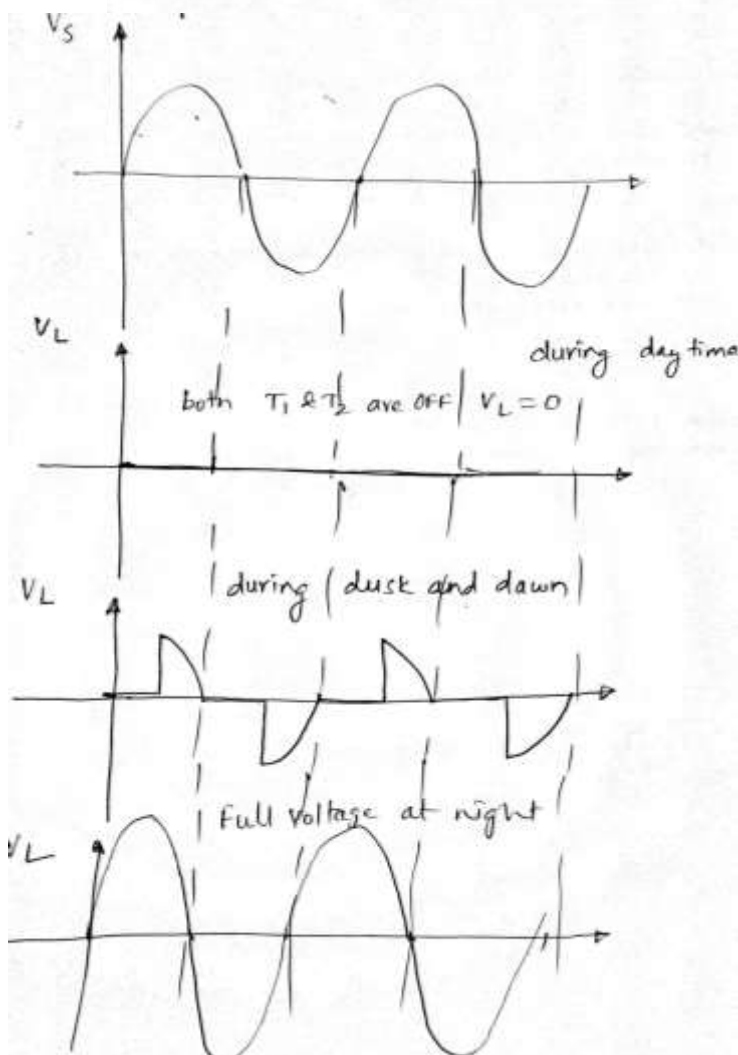 Vs
VL
during day time
both T1 & T2 are OFF VL = 0
VL
during dusk and dawn
Full voltage at night
VL